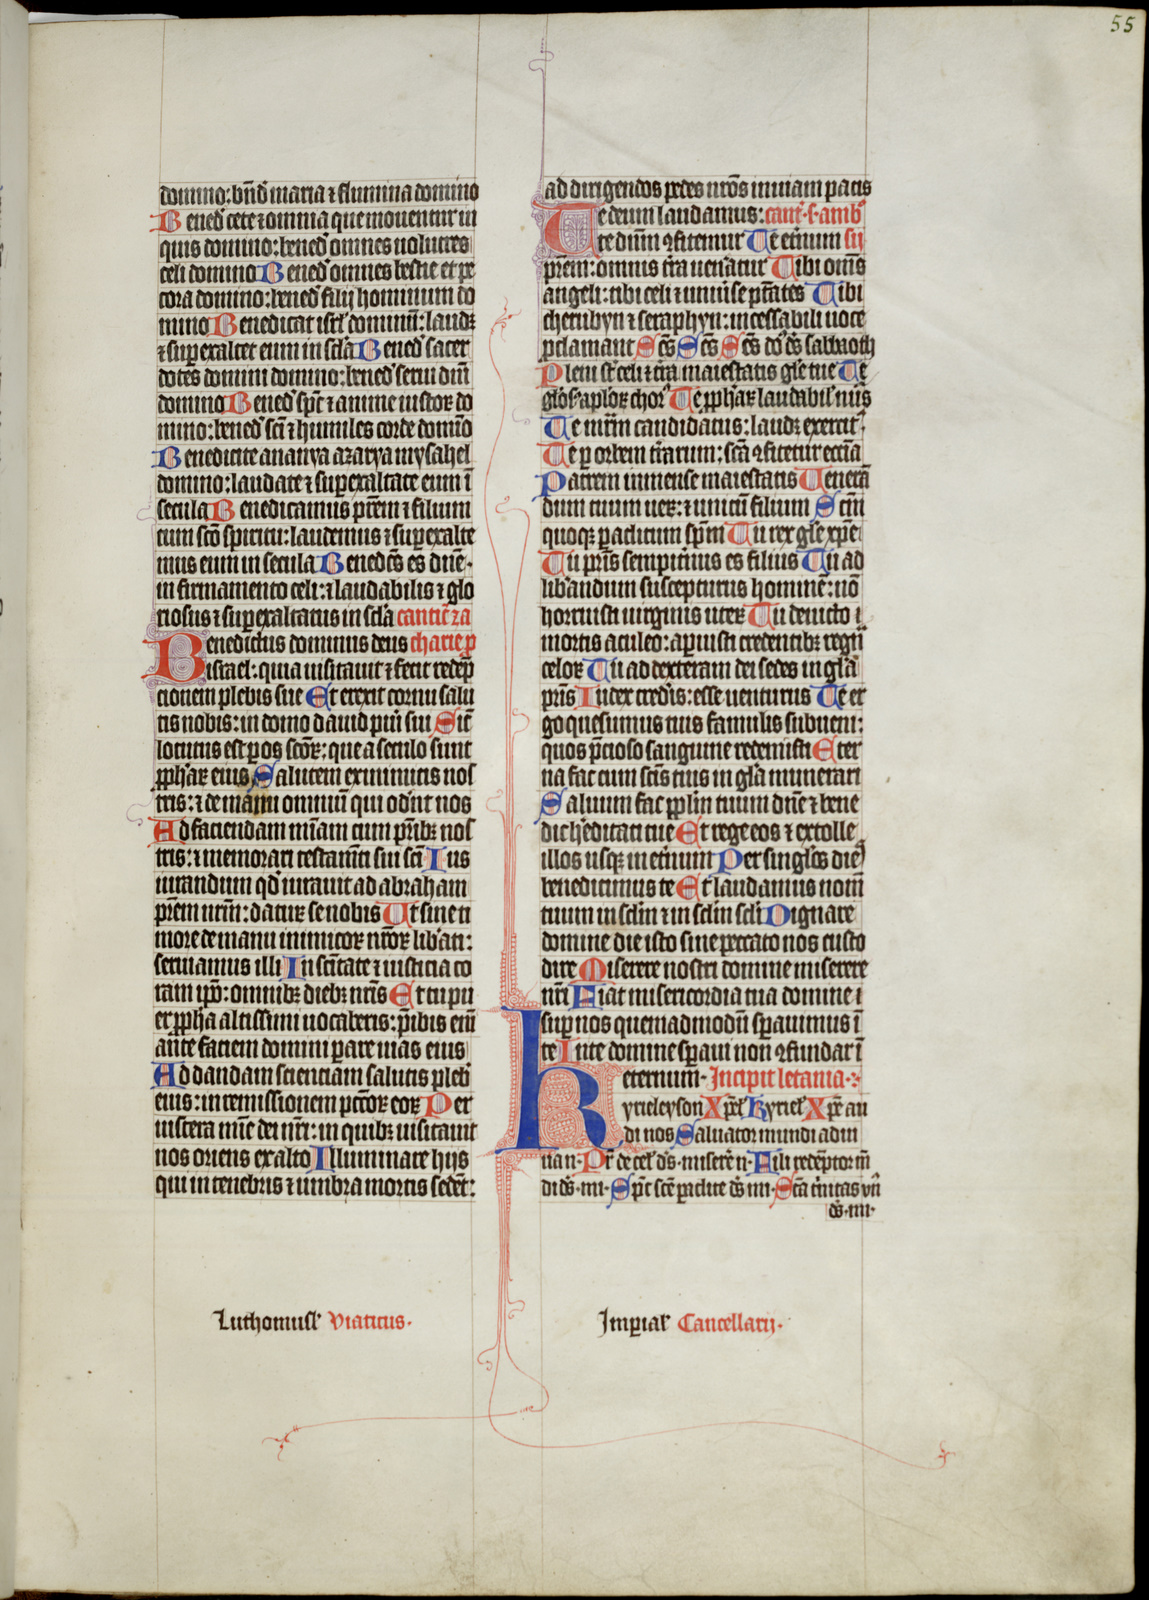 55
domino: bnd maria ⁊ flumina domino
Bened cete ⁊ omnia que mouentur in
quis domino: bened omnes uolucres
celi domino Bened omnes bestie et pe
cora domino: bened filij hominum do
mino Benedicat isrl dominum: laudꝫ
⁊ superexaltet eum in scla Bened sacer
dotes domini domino: bened serui dni
domino Bened spc ⁊ anime iustoꝝ do
mino: bened sci ⁊ humiles corde domino
Benedicite ananya azarya mysahel
domino: laudate ⁊ superexaltate eum i
secula Benedicamus prem ⁊ filium
cum sco spiritu: laudemus ⁊ superexalte
mus eum in secula Benedcs es dne
in firmamento celi: ⁊ laudabilis ⁊ glo
riosus ⁊ superexaltatus in scla cantic za
Benedictus dominus deus charie p
israel: quia uisitauit ⁊ fecit redep
cionem plebis sue Et erexit cornu salu
tis nobis: in domo dauid pueri sui Sic
locutus est per os scoꝝ: que a seculo sunt
ꝓphaꝝ eius Salutem ex inimicis nos
tris: ⁊ de manu omniu qui oderut nos
Ad faciendam miam cum pribꝫ nos
tris: ⁊ memorari testamti sui sci Ius
iurandum qd iurauit ad abraham
prem nrm: daturꝫ se nobis Ut sine ti
more de manu inimicoꝝ nroꝝ libati:
seruiamus illi In scitate ⁊ iusticia co
ram ipo: omnibꝫ diebꝫ nris Et tu pu
er ꝓpha altissimi uocaberis: pibis eni
ante faciem domini parare uias eius
Ad dandam scienciam salutis plebi
eius: in remissionem pctoꝝ eoꝝ Per
uiscera mie dei nri: in quibꝫ uisitauit
nos oriens ex alto Illuminare hijs
qui in tenebris ⁊ umbra mortis sedet:
ad dirigendos pedes nros in uiam pacis
Te deum laudamus: cant s amb
te dnm ꝯfitemur Te eternum
prem: omnis tra ueneratur Tibi oms
angeli: tibi celi ⁊ uniuse ptates Tibi
cherubyn ⁊ seraphyn: incessabili uoce
ꝓclamant Scs Scs Scs ds sabbaoth
Pleni st celi ⁊ tra maiestatis gle tue Te
glos aploꝝ chor Te ꝓphaꝝ laudabil nus
Te mrm candidatus: laudꝫ exercit
Te per orbem trarum: sca ꝯfitetur eccia
Patrem inmense maiestatis Venera
dum tuum ueꝝ: ⁊ unicu filium Scm
quoqꝫ paclitum spm Tu rex gle xpe
Tu pris sempiternus es filius Tu ad
liberandum suscepturus homine: no
horruisti uirginis uteꝝ Tu deuicto
mortis aculeo: aperuisti credentibꝫ regna
celoꝝ Tu ad dexteram dei sedes in gla
pris Iudex crederis: esse uenturus Te er
go quesumus tuis famulis subueni:
quos precioso sanguine redemisti Eter
na fac cum scis tuis in gla munerari
Saluum fac ꝓplm tuum dne ⁊ bene
dic hereditati tue Et rege eos ⁊ extolle
illos usqꝫ in eternum Per singlos dies
benedicimus te Et laudamus nom
tuum in sclm ⁊ in sclm scli Dignare
domine die isto sine peccato nos custo
dire Miserere nostri domine miserere
nri Fiat misericordia tua domine
super nos quemadmodu sperauimus i
te In te domine speraui non ꝯfundar i
eternum Incipit letania
Kyrieleyson Xpel Kyriel Xpe au
di nos Saluator mundi adiu
ua n Pr de cel ds misere n Fili redeptor m
di ds mi Spc sce paclite ds mi Sca trinitas un
ds mi
Luthomusl Viaticus Imperial Cancellarij